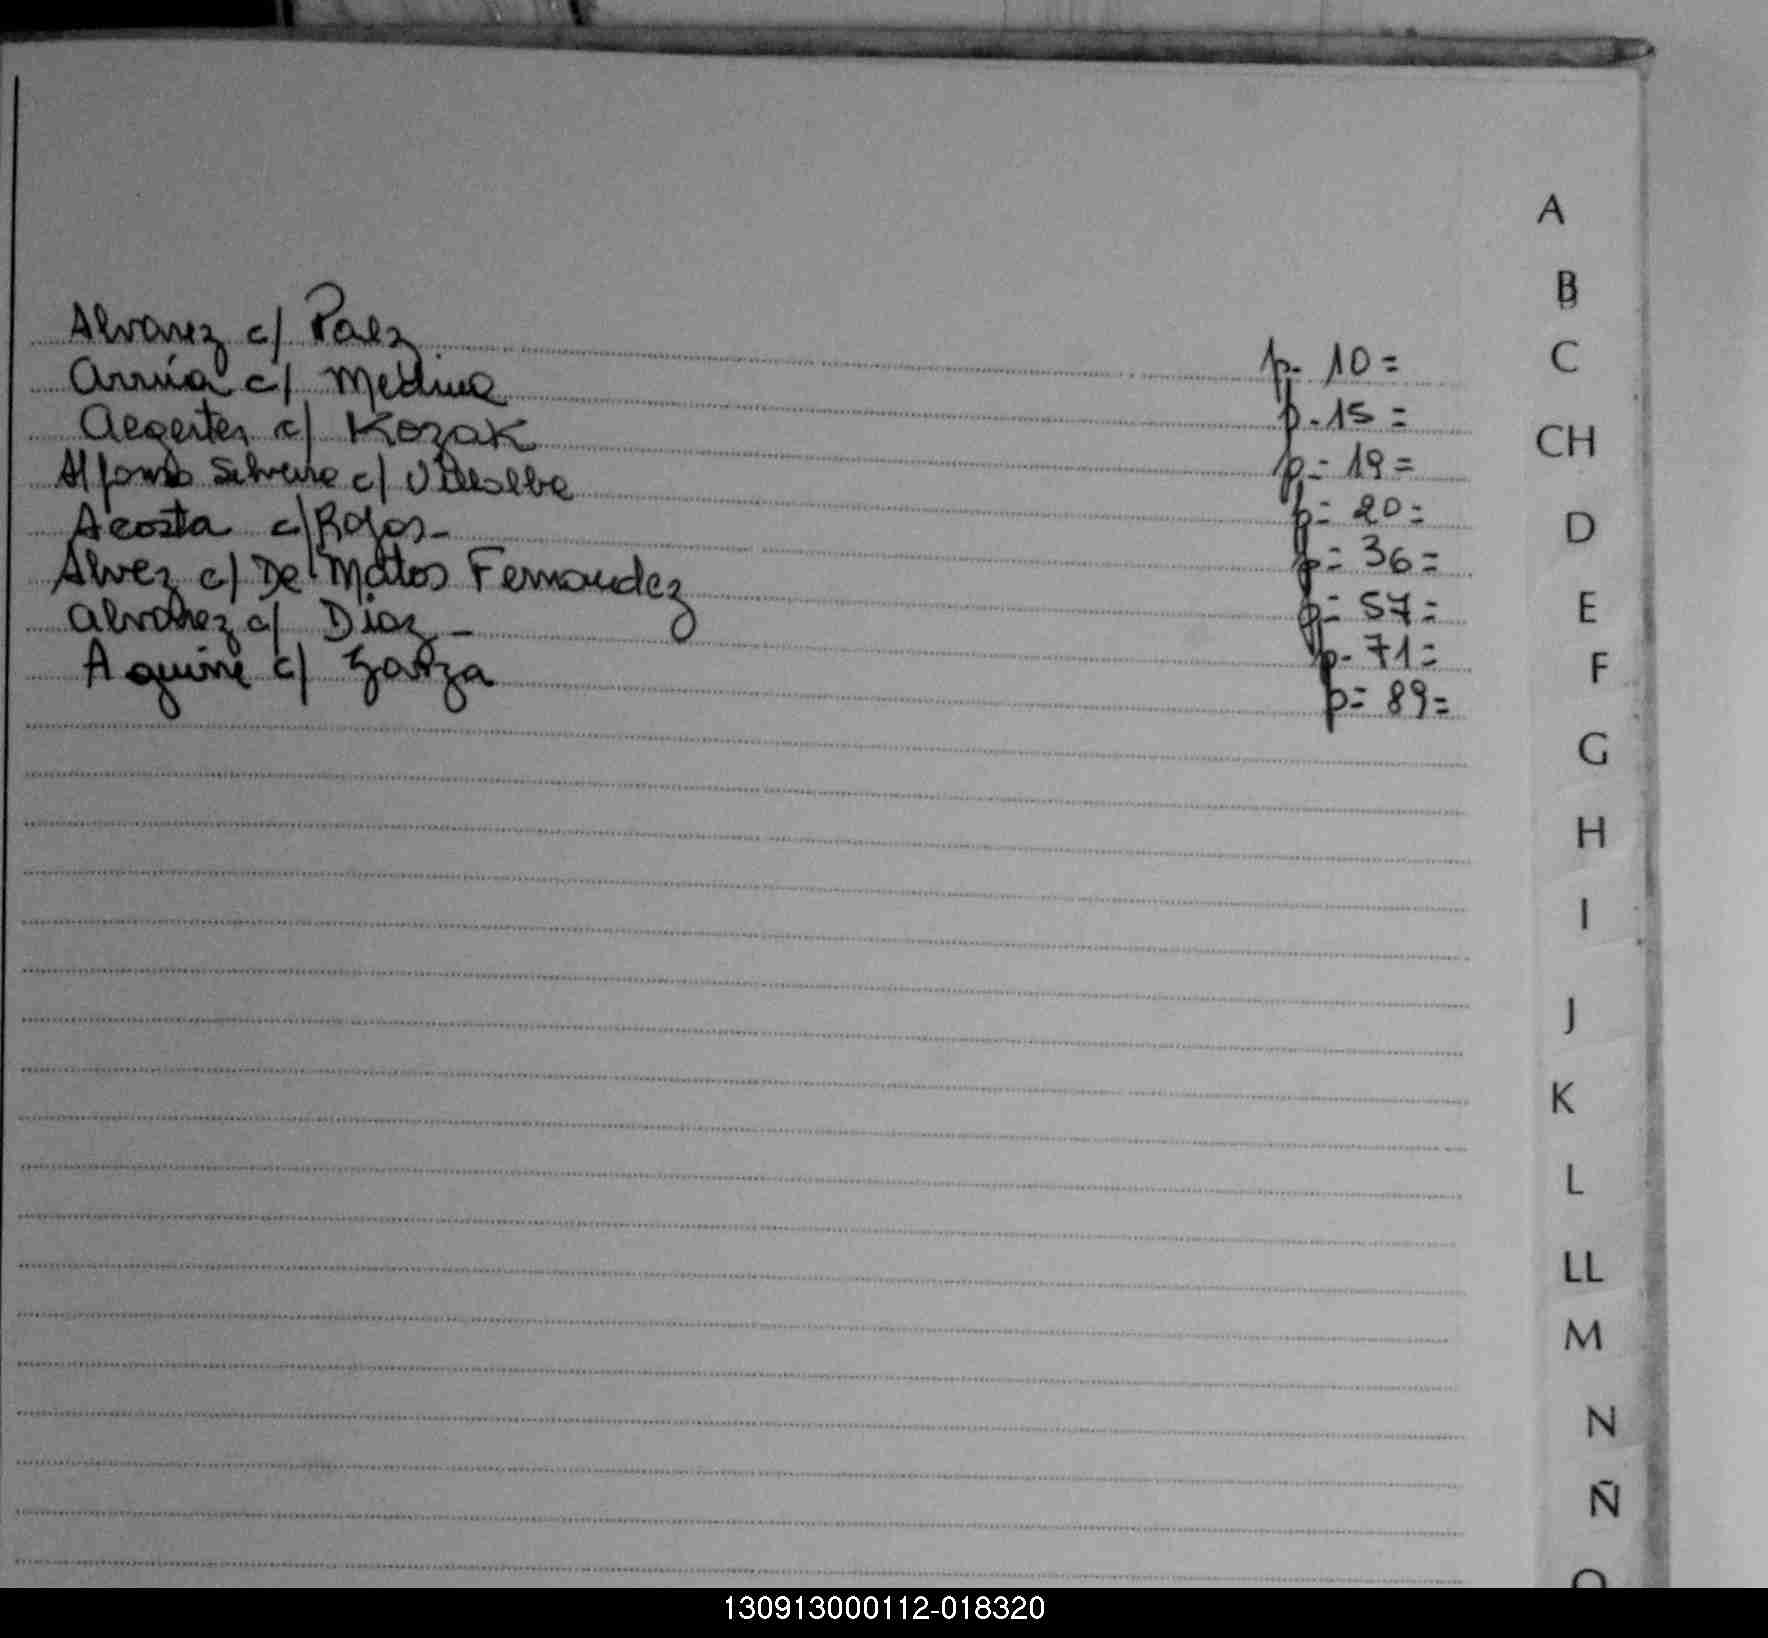 Alvarez c/ Paez p- 10=
Arrúa c/ Medina p-15=
Aegerter c/ Kozak p= 19=
Alfonso Silveira c/ Villalba p= 20=
Acosta c/ Rojas- p= 36=
Alvez c/ De Matos Fernandez p= 57=
Alvarez c/ Diaz - p- 71=
Aguirre c/ p= 89=
A
B
C
CH
D
E
F
G
H
I
J
K
L
LL
M
N
Ñ
O
130913000112-018320